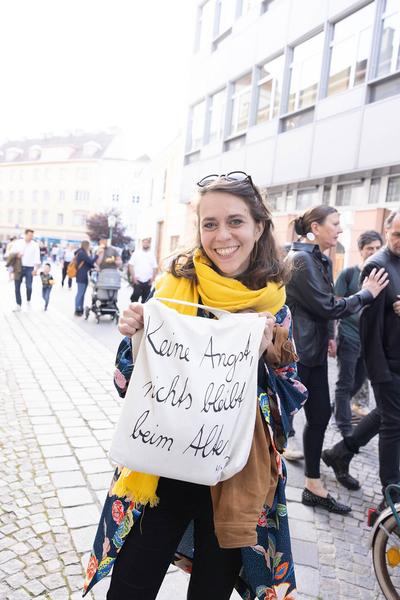 Keine Angst,
nichts bleibt
beim Alten